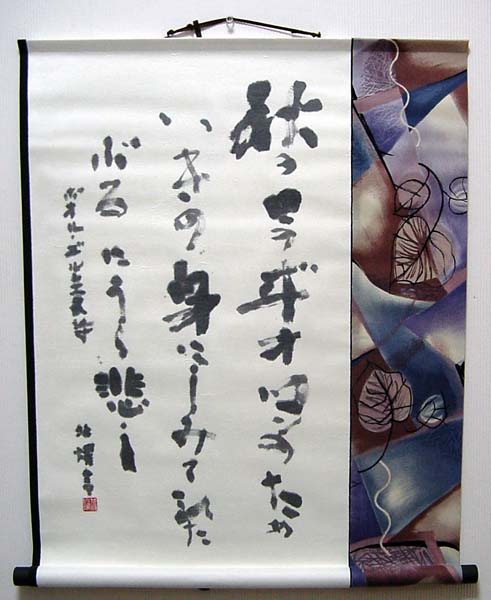 秋の日のヴィオロンのため
いきの身にしみてひた
ぶるにうら悲し
ポオル・ヴェルレエヌ